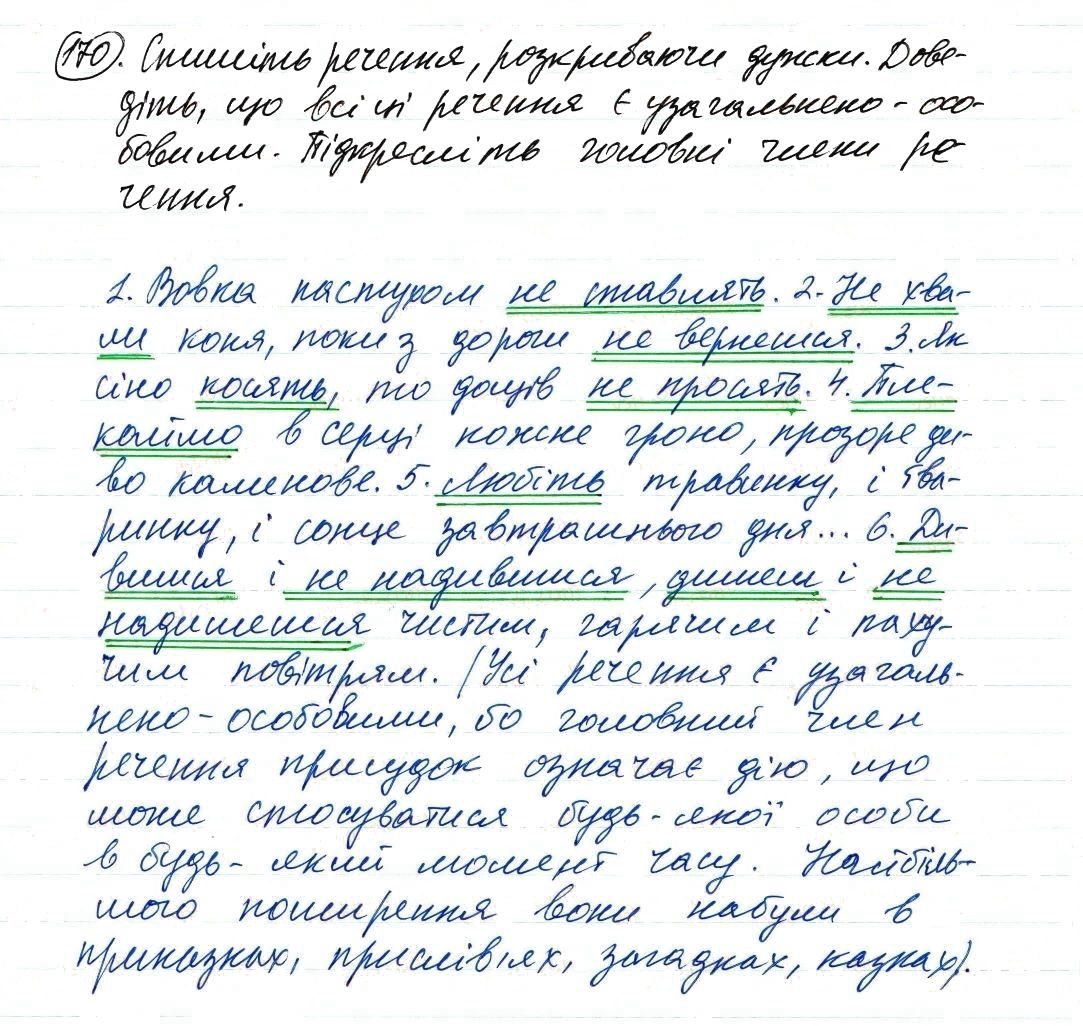 170. Спишіть речення, розкриваючи дужки. Дове-
діть, що всі ці речення є узагальнено-осо-
бовими. Підкресліть головні члени ре-
чення.
1. Вовка пастухом не ставлять. 2. Не хва-
ли коня, поки з дороги не вернешся. 3. Як
сіно косять, то дощів не просять. 4. Пле-
каймо в серці кожне гроно, прозоре ди-
во калинове. 5. Любіть травинку, і тва-
ринку, і сонце завтрашнього дня... 6. Ди-
вишся і не надивишся, дишеш і не
надишешся чистим, гарячим і паху-
чим повітрям. (Усі речення є узагаль-
нено-особовими, бо головний член
речення присудок означає дію, що
може стосуватися будь-якої особи
в будь-який момент часу. Найбіль-
шого поширення вони набули в
приказках, прислів'ях, загадках, казках).